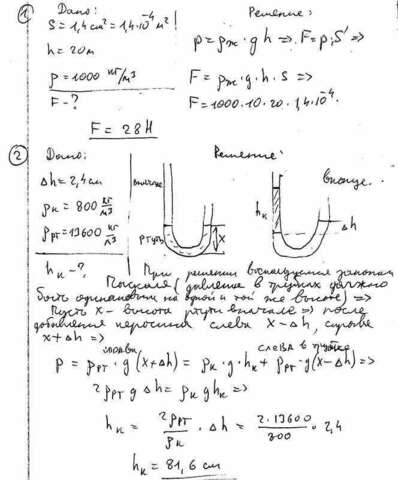 ① Дано:
S = 1,4 см² = 1,4·10⁻⁴ м²
h = 20 м
ρ = 1000 кг/м³
F - ?
Решение:
p = ρж·g·h => F = p·S =>
F = ρж·g·h·S =>
F = 1000·10·20·1,4·10⁻⁴.
F = 28 Н
② Дано:
Δh = 2,4 см
ρк = 800 кг/м³
ρрт = 13600 кг/м³
hк - ?
Решение:
вначале
ртуть
x
вконце..
hк
Δh
При решении воспользуемся законом
Паскаля (давление в трубках должно
быть одинаковым на одной и той же высоте) =>
Пусть x - высота ртути вначале => после
добавления керосина слева x-Δh, справа
x+Δh =>
справа
слева в трубке
p = ρрт g (x+Δh) = ρк·g·hк + ρрт·g(x-Δh) =>
2ρрт g Δh = ρк g hк =>
hк = 2ρрт/ρк · Δh = 2·13600/800 · 2,4
hк = 81,6 см